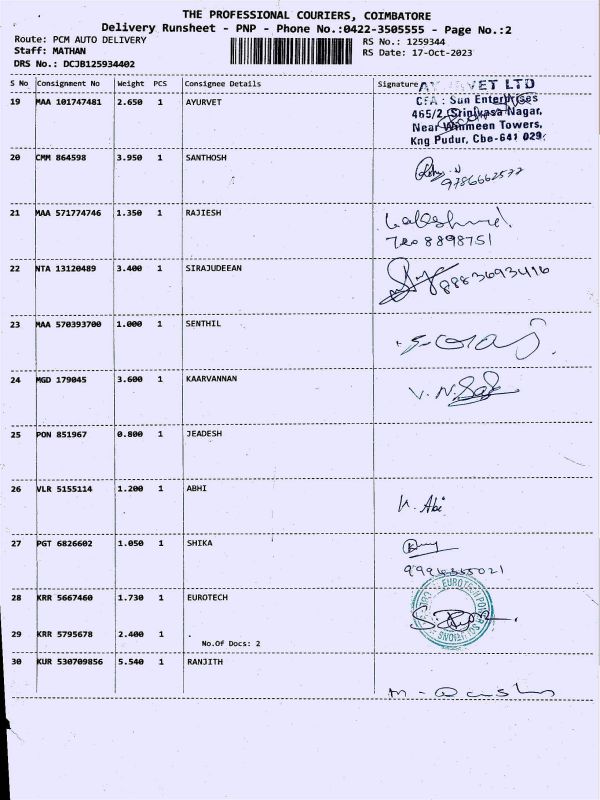 THE PROFESSIONAL COURIERS, COIMBATORE
Delivery Runsheet - PNP - Phone No.:0422-3505555 - Page No.:2
Route: PCM AUTO DELIVERY
Staff: MATHAN
DRS No.: DCJB125934402
RS No.: 1259344
RS Date: 17-Oct-2023
S No Consignment No Weight PCS Consignee Details Signature
19 MAA 101747481 2.650 1 AYURVET
VET LTD
CFA : Sun Enterprises
465/2, Srinivasa Nagar,
Near Winmeen Towers,
Kng Pudur, Cbe-641 029.
20 CMM 864598 3.950 1 SANTHOSH
9786662577
21 MAA 571774746 1.350 1 RAJIESH
22 NTA 13120489 3.400 1 SIRAJUDEEAN
8883693416
23 MAA 570393700 1.000 1 SENTHIL
24 MGD 179045 3.600 1 KAARVANNAN
25 PON 851967 0.800 1 JEADESH
26 VLR 5155114 1.200 1 ABHI
K. Abi
27 PGT 6826602 1.050 1 SHIKA
28 KRR 5667460 1.730 1 EUROTECH
EUROTECH POWER
29 KRR 5795678 2.400 1 .
No.Of Docs: 2
30 KUR 530709856 5.540 1 RANJITH